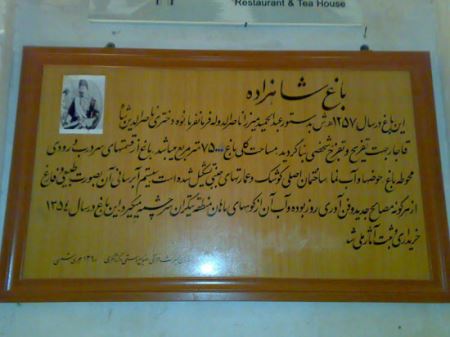 Restaurant & Tea House
باغ شاهزاده
این باغ در سال ۱۲۵۷ه.ش به دستور عبدالحمید میرزا ناصرالدوله فرمانفرما نوه دختری ناصرالدین شاه
قاجار جهت تفریح و تفرج شخصی بنا گردید. مساحت کلی باغ ۷۵۰۰۰ مترمربع میباشد باغ از قسمتهای سردرب ورودی
محوطه باغ حوضها و آب نما ساختمان اصلی کوشک و عمارتهای جنبی تشکیل شده است سیستم آبرسانی آن بصورت طبیعی و فارغ
از هرگونه مصالح جدید و فن آوری روز بوده و آب آن از کوههای ماهان منطقه تیگران سرچشمه میگیرد این باغ در سال ۱۳۵۷
خریداری و ثبت آثار ملی شد